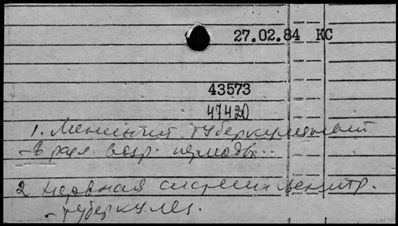 27.02.84 КС
43573
47420
1. Менингит туберкулезный
- в разл. возр. периоды.
2 нервная система центр.
- туберкулез.